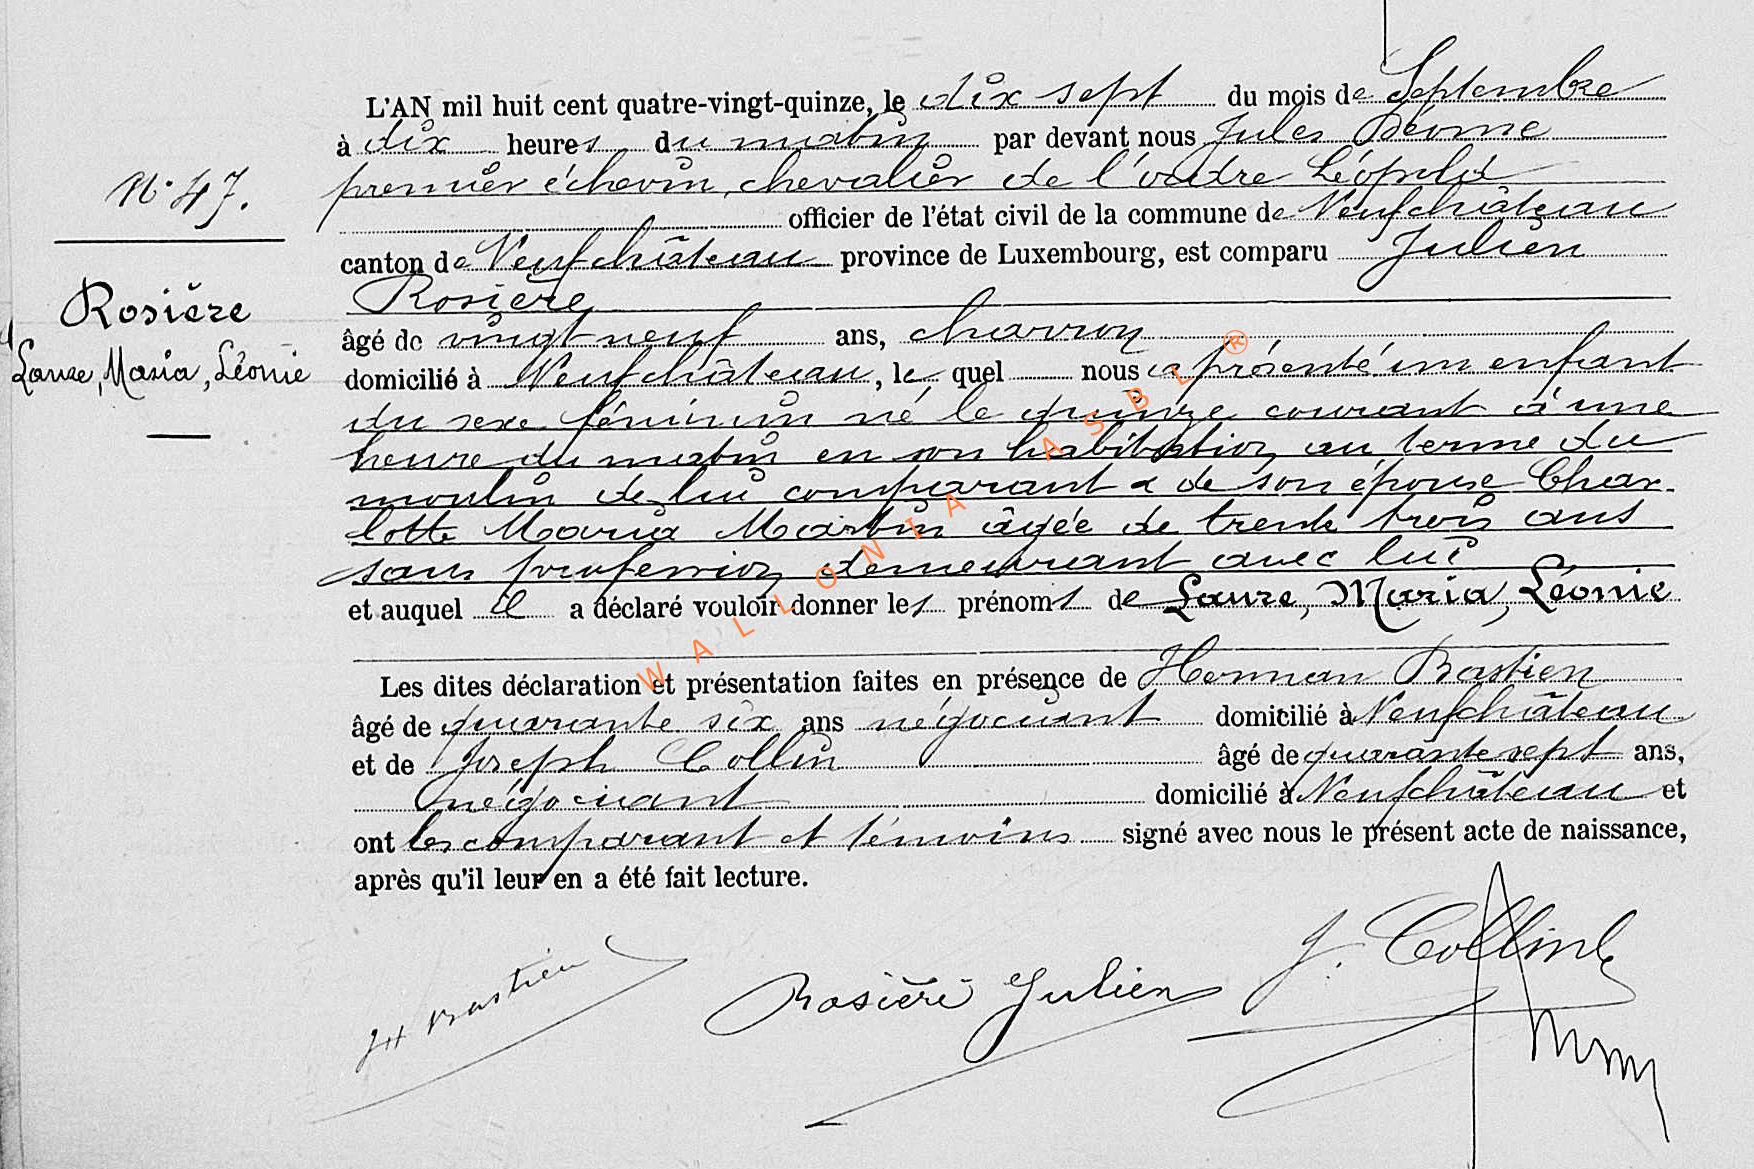 L'AN mil huit cent quatre-vingt-quinze, le dix sept du mois de Septembre
à dix heures du matin par devant nous Jules
premier échevin, chevalier de l'ordre Léopold
officier de l'état civil de la commune de Neufchâteau
canton de Neufchâteau province de Luxembourg, est comparu Julien
Rosière
âgé de vingt neuf ans, charron
domicilié à Neufchâteau, le quel nous a présenté un enfant
du sexe féminin né le quinze courant à une
heure du matin en son habitation au terme du
moulin de lui comparant & de son épouse Char-
lotte Maria Martin âgée de trente trois ans
sans profession demeurant avec lui
et auquel il a déclaré vouloir donner les prénoms de Laure, Maria, Léonie
Les dites déclaration et présentation faites en présence de Herman Bastien
âgé de quarante six ans négociant domicilié à Neufchâteau
et de Joseph Collin âgé de quarante sept ans,
négociant domicilié à Neufchâteau et
ont les comparant et témoins signé avec nous le présent acte de naissance,
après qu'il leur en a été fait lecture.
N° 47.
Rosière
Laure, Maria, Léonie
H Bastien
Rosière Julien
J. Collin
WALLONIA ASBL ®